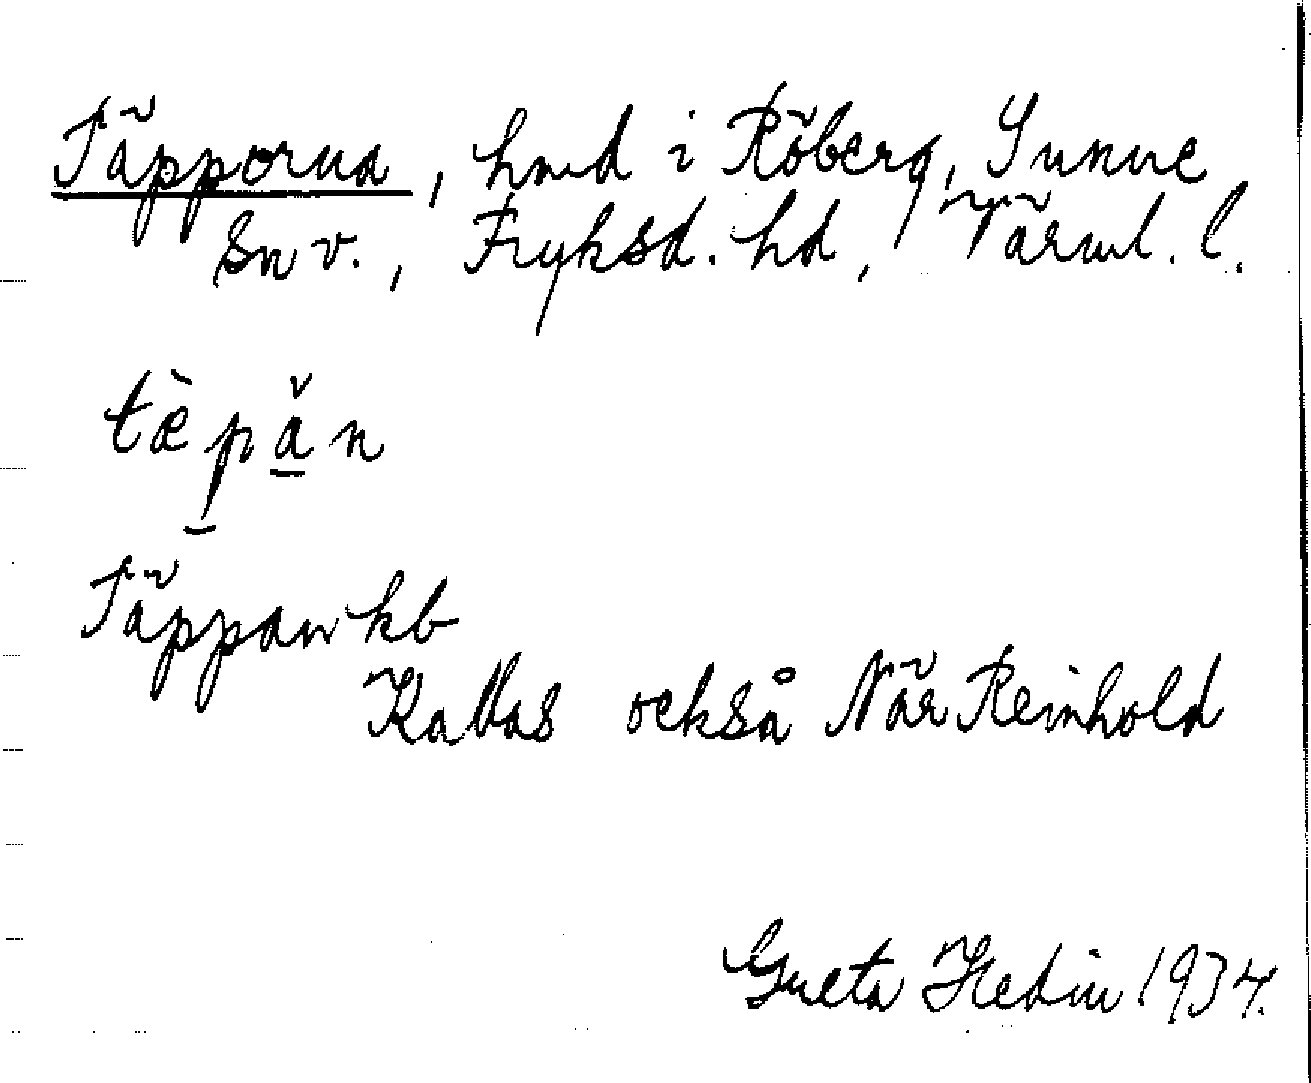 Täpporna, hmd i Röberg, Sunne
sn v., Fryksd. hd, Värml. l.
tæ̀pǎ̲n
Täppan kb
Kallas också När Reinhold
Greta Hedin 1934.